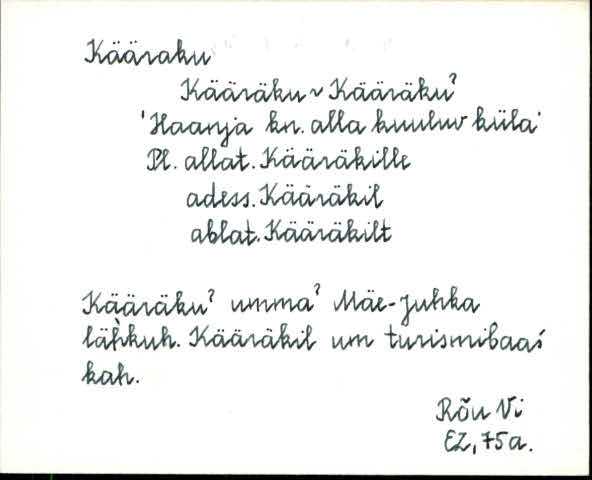 Kääraku
Kääräku ~ Kääräku?
'Haanja kn. alla kuuluv küla'
Pl. allat. Kääräkille
adess. Kääräkil
ablat. Kääräkilt
Kääräku? umma? Mäe-Juhka
läh̀kuh. Kääräkil um turismibaaś
kah.
Rõu Vi
EZ, 75a.